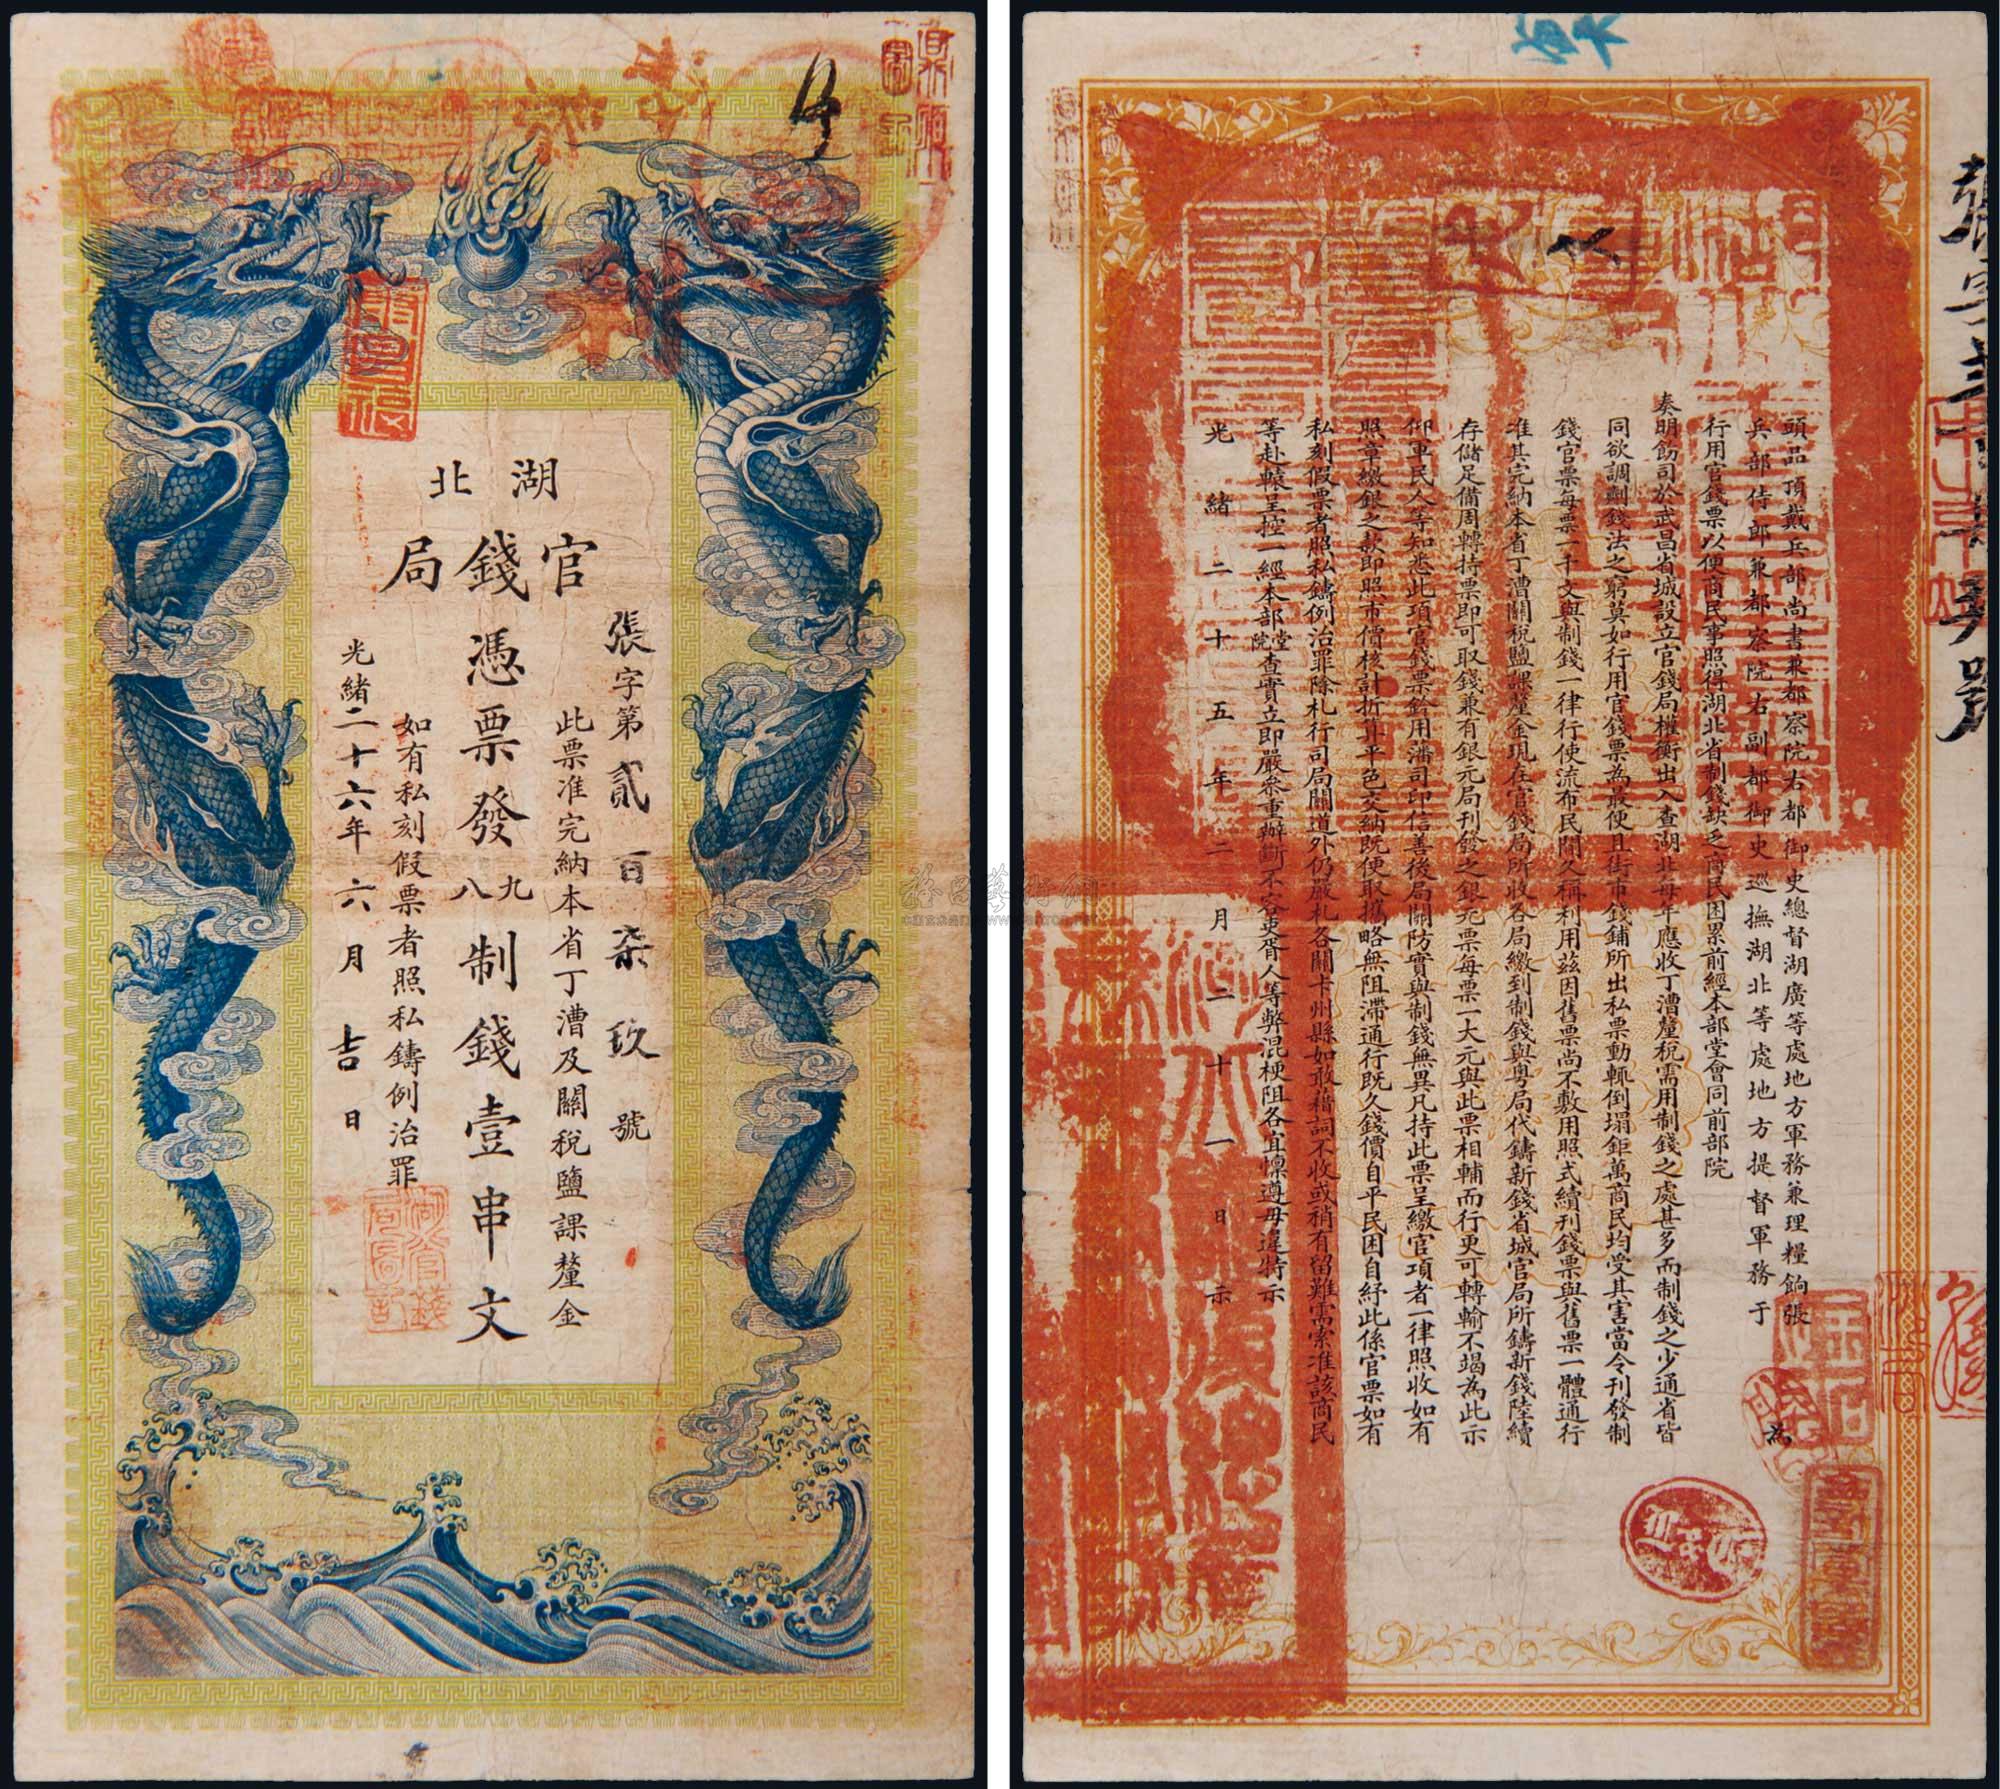 湖北
官錢局
憑票發九八制錢壹串文
張字第貳百柒玖號
此票准完納本省丁漕及關稅鹽課釐金
如有私刻假票者照私鑄例治罪
光緒二十六年六月吉日
頭品頂戴兵部尚書兼都察院右都御史總督湖廣等處地方軍務兼理糧餉張
兵部侍郎兼都察院右副都御史巡撫湖北等處地方提督軍務于
為
行用官錢票以便商民事照得湖北省制錢缺乏商民困累前經本部堂會同前部院
奏明飭司於武昌省城設立官錢局權衡出入查湖北每年應收丁漕釐稅需用制錢之處甚多而制錢之少通省皆
同欲調劑錢法之窮莫如行用官錢票為最便且街市錢鋪所出私票動輒倒塌鉅萬商民均受其害當令刊發制
錢官票每票一千文與制錢一律行使流布民間久稱利用茲因舊票尚不敷用照式續刊錢票與舊票一體通行
准其完納本省丁漕關稅鹽課釐金現在官錢局所收各局繳到制錢與粵局代鑄新錢省城官局所鑄新錢陸續
存儲足備周轉持票即可取錢兼有銀元局刊發之銀元票每票一大元與此票相輔而行更可轉輸不竭為此示
仰軍民人等知悉此項官錢票鈐用藩司印信善後局關防實與制錢無異凡持此票呈繳官項者一律照收如有
照章繳銀之款即照市價核計折算平色交納既便取攜略無阻滯通行既久錢價自平民困自紓此係官票如有
私刻假票者照私鑄例治罪除札行司局關道外仍嚴札各關卡州縣如敢藉詞不收或稍有留難需索准該商民
等赴轅呈控一經本部堂院查實立即嚴參重辦斷不容吏胥人等弊混梗阻各宜懍遵毋違特示
光緒二十五年二月二十一日示